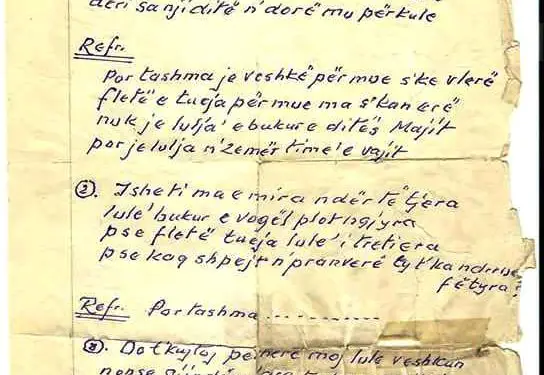 deri sa një ditë n'dorë mu përkule
Refr.
Por tashma je veshkë për mue s'ke vlerë
fletë e tueja për mue ma s'kan erë
nuk je lulja' e bukur e ditës Majit
por je lulja n'zemër time' e vajit
②. Ishe ti ma e mira ndër të tjera
lule' bukur e vogël plot ngjyra
pse fletë tueja lule' i tretiera
pse kaq shpejt n'pranverë ty t'ka ndrrue
fëtyra?
Refr. Por tashma ..............
③. Do t'kujtoj përherë moj lule veshkun